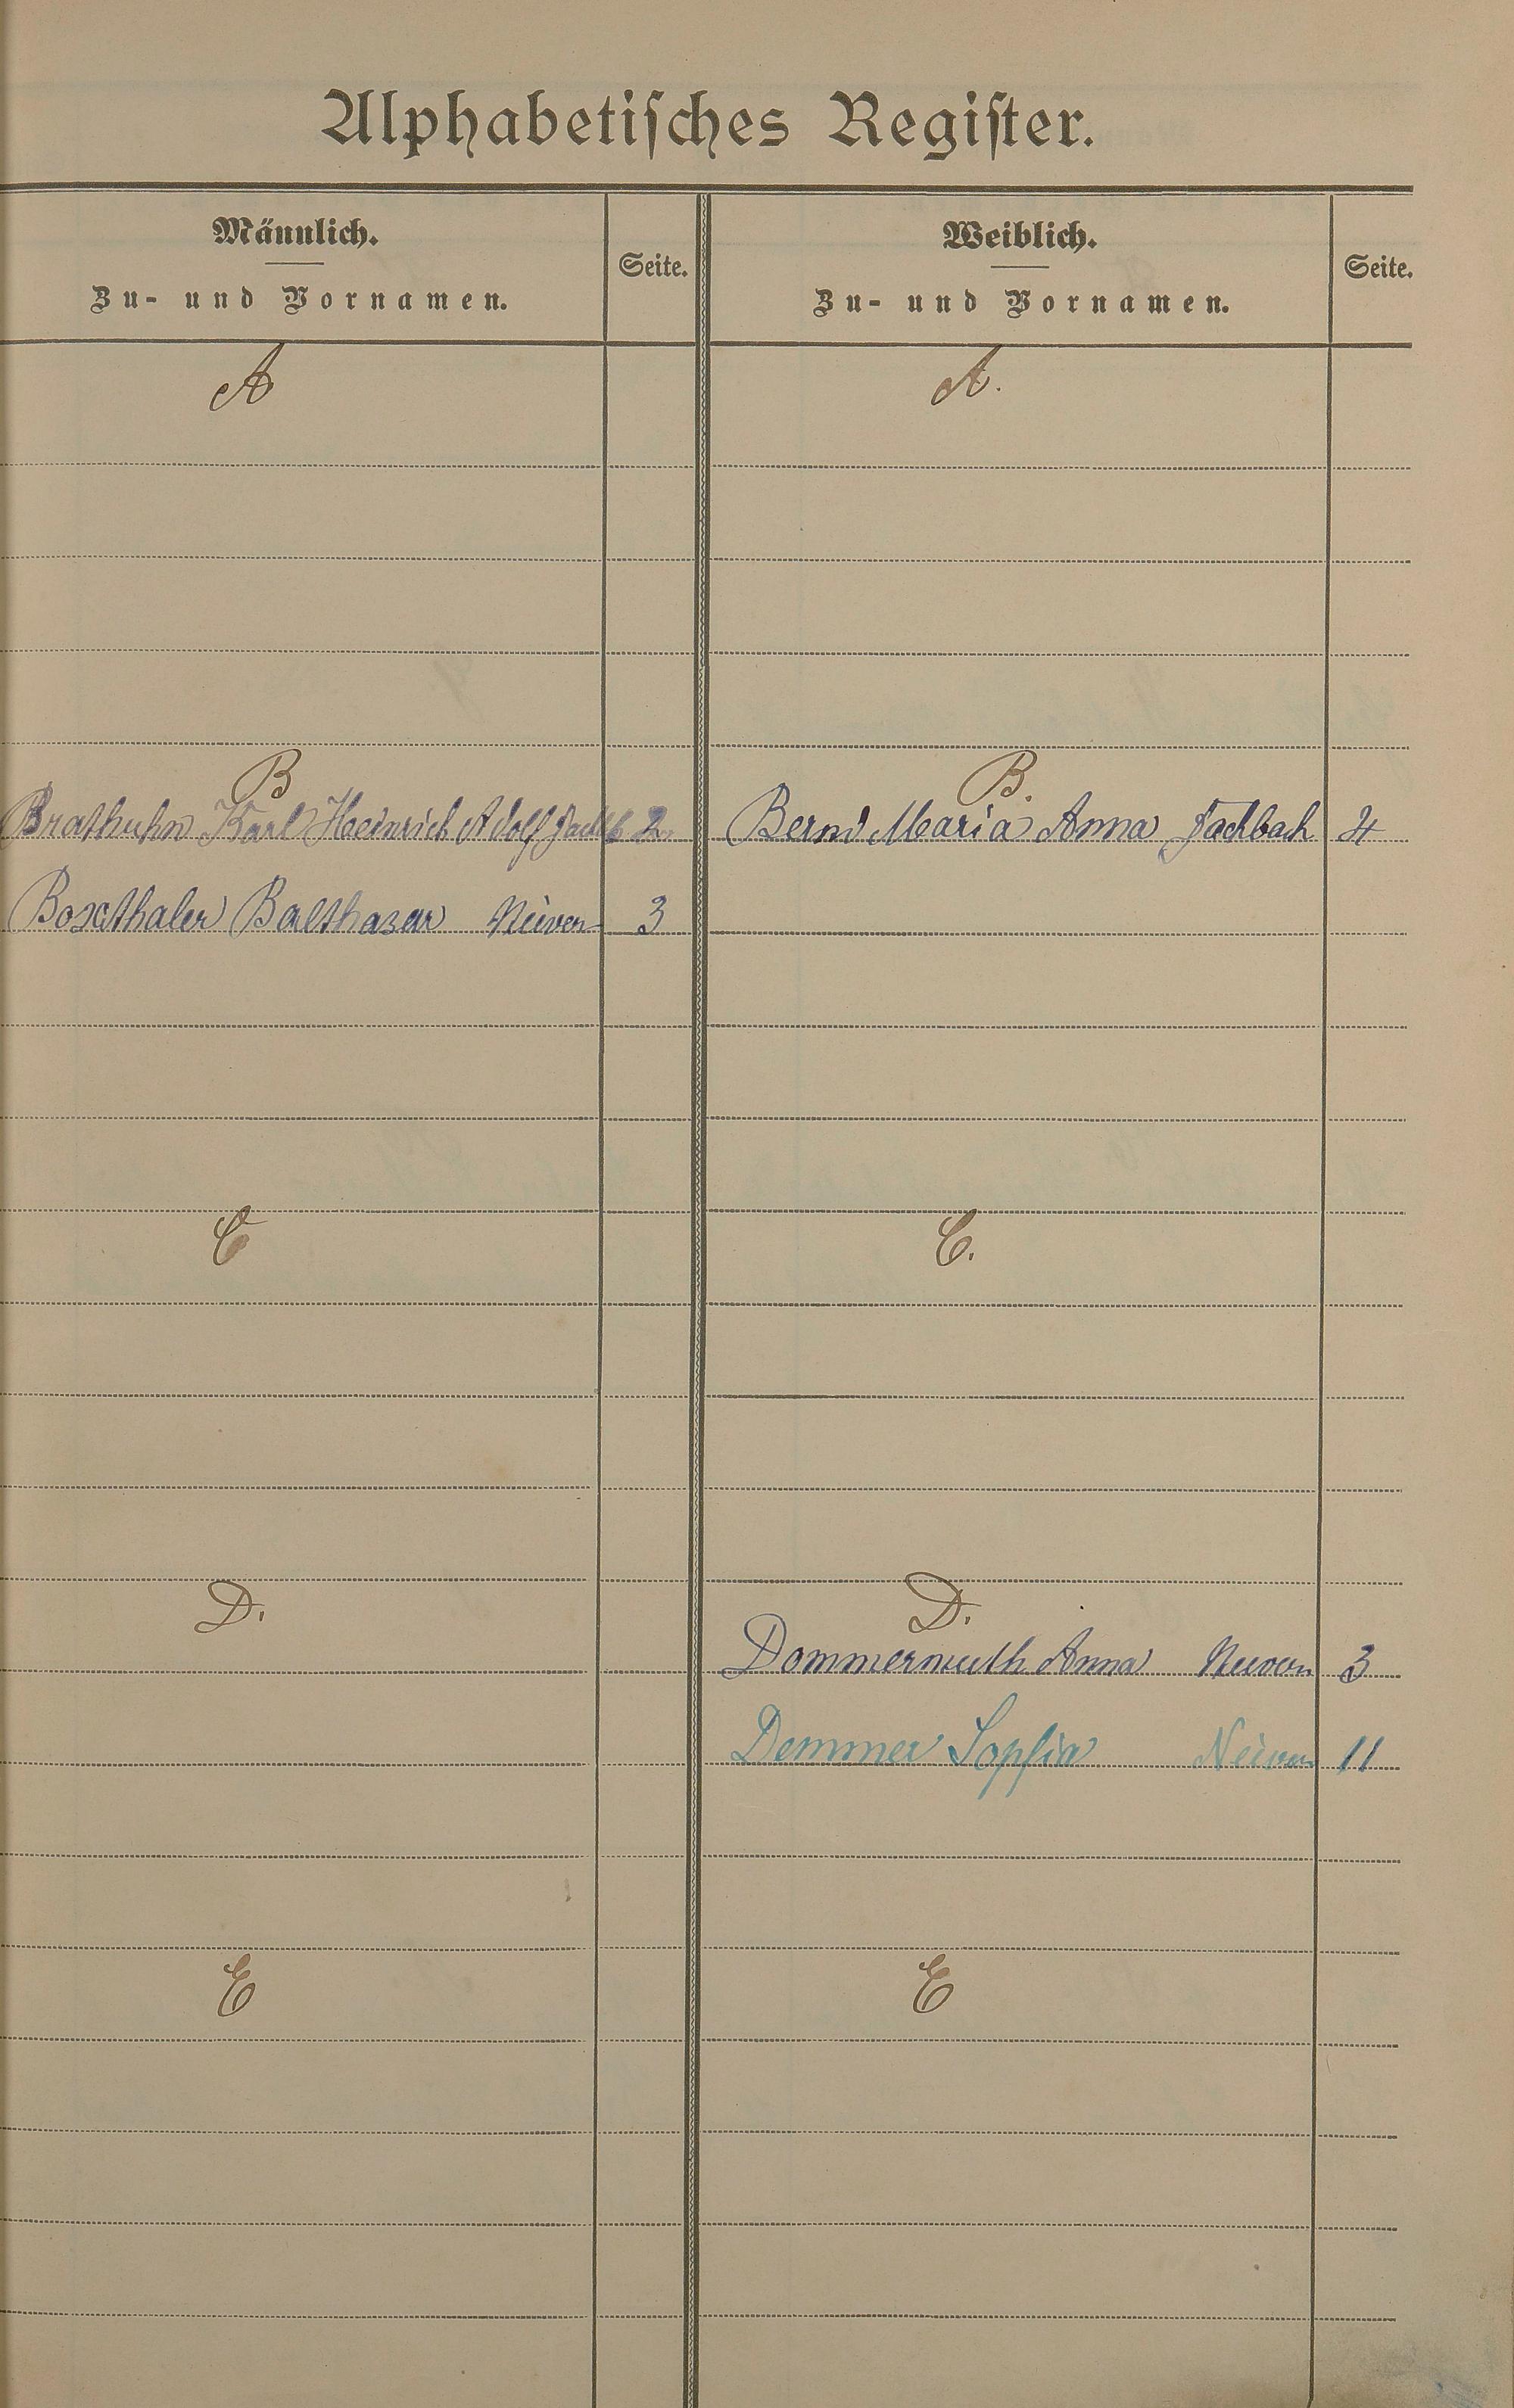 Alphabetisches Register.
Männlich. Seite. Weiblich. Seite.
Zu- und Vornamen. Zu- und Vornamen.
A A.
B B.
Brathuhn Karl Heinrich Adolf Fachb 2 Bernd Maria Anna Fachbach 4
Boxthaler Balthasar Nieven 3
C C.
D. D.
Dommermuth Anna Nieven 3
Demmer Sophia Nieven 11
E E